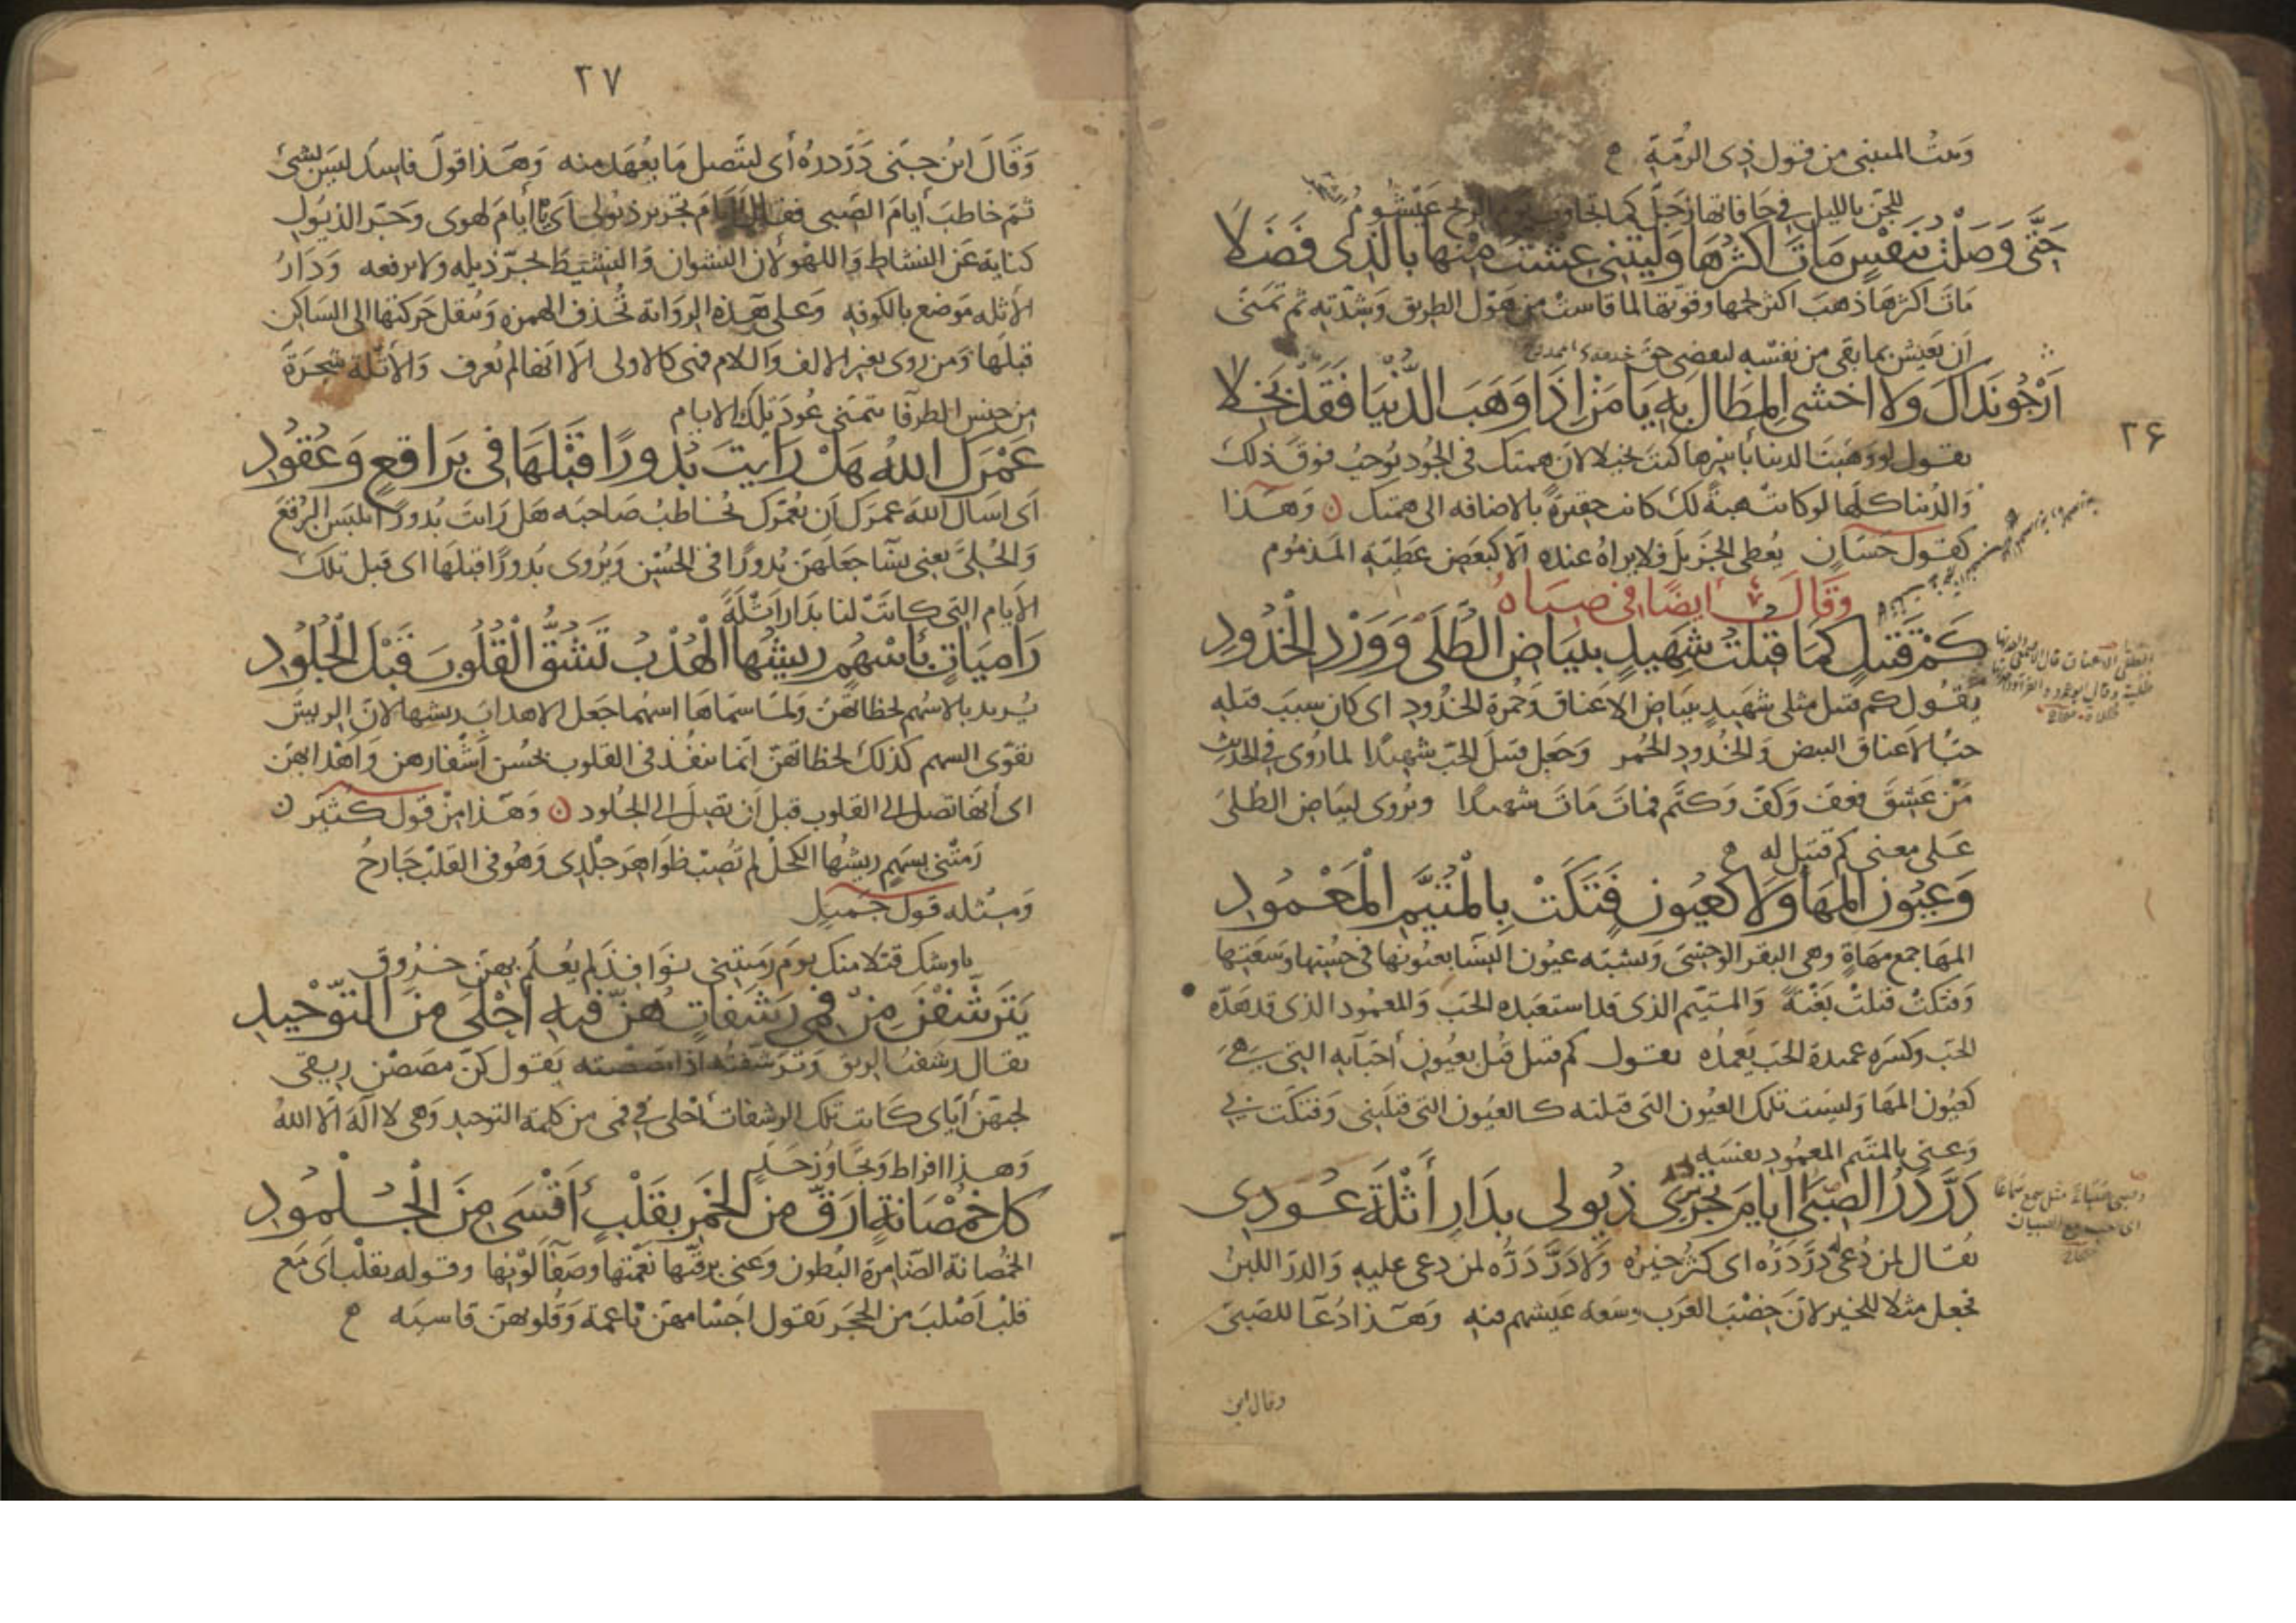 وبيت المتنبى من قول ذى الرمة
للجن بالليل فى حافاتها زجل كما تجاوب يوم الريح عيشوم
حَتَّى وَصَلْتُ بنَفْسٍ مَاتَ اكثرُهَا وَلَيتنى عِشتُ مِنْها بالذى فَضَلا
مات اكثرها ذهب اكثر لحمها وقوتها لما قاست من هول الطريق وشدته ثم تمنى
ان يعيش بما بقى من نفسه ليقضى حق
أَرْجُو نَدَاكَ وَلا اخشى المِطَالَ بِهِ يَا مَنْ اِذَا وَهَبَ الدُّنْيَا فَقَدْ بَخِلا
٢۶
يقول لو وهبت الدنيا بأسرها كنت بخيلا لان همتك فى الجود توجب فوق ذلك
والدنيا كلها لو كانت هبة لك كانت حقيرة بالاضافه الى همتك ن وهذا
كقول حسان يعطى الجزيل فلا يراه عنده الا كبعض عطيّة المذموم
وَقَالَ ايضًا فى صباه
كَمْ قَتيلٍ كمَا قُتِلتُ شَهِيدٍ ببيَاضِ الطُّلَى وَوَرْدِ الْخُدُودِ
يقول كم قتيل مثلى شهيد ببياض الاعناق وحمرة الخدود اى كان سبب قتله
حب الاعناق البيض والخدود الحمر وجعل قتيل الحب شهيدا لما روى فى الحديث
من عشق فعف وكف وكتم فمات مات شهيدا ويروى لبياض الطلى
على معنى كم قتيل له
وَعُيُونِ المَهَا وَلا كَعُيُونٍ فَتَكَتْ بِالْمُتَيَّمِ الْمَعْمُودِ
المها جمع مهاة وهى البقر الوحشى وتشبه عيون النسا بعيونها فى حسنها وسعتها
وفتكت قتلت بغتة والمتيّم الذى قد استعبده الحب والمعمود الذى قد هدّه
الحب وكسره عمده الحب يعمده يقول كم قتيل قتل بعيون احبّايه التى هى
كعيون المها وليست تلك العيون التى قتلته كالعيون التى قتلتنى وفتكت بى
وعنى بالمتيم المعمود نفسه
دَرَّ دَرُّ الصِّبَى أيامَ تَجْريرِ ذُيُولى بدَارِ أَثْلَةَ عُودِى
يقال لمن دعى له درّ درّه اى كثر خيره ولا درّ درّه لمن دعى عليه والدر اللبن
فجعل مثلا للخير لان خصب العرب وسعة عيشهم منه وهذا دعا للصبى
وقال ابن
٢٧
وقال ابن جنى درّ درّه أى ليتصل ما يعهد منه وهذا قول فاسد ليس بشئ
ثم خاطب أيام الصبى فقال أيام تجرير ذيولى اى يا أيام لهوى وجر الذيول
كناية عن النشاط واللهو لان النشوان والنشيط يجرّ ذيله ولا يرفعه ودار
الأثله موضع بالكوفه وعلى هذه الرواية تحذف الهمزه وتنقل حركتها الى الساكن
قبلها ومن روى بغير الالف واللام فهى كالاولى الا انها لم تعرف والأثلة شجرة
من جنس الطرفا يتمنى عود تلك الايام
عَمْرَكَ اللهُ هَلْ رَأيتَ بُدُورًا قَبْلَهَا فى بَرَاقعٍ وَعُقُودِ
اى اسال الله عمرك ان يعمّرك يخاطب صاحبه هل رايت بدورا تلبس البرقع
والحلىّ يعنى نسا جعلهن بدورا فى الحسن ويروى بدورا قبلها اى قبل تلك
الايام التى كانت لنا بدار اثلة
رَامِيَاتٍ بأسْهُمٍ رِيشُها الْهُدْبُ تَشُقُّ الْقُلُوبَ قَبْلَ الْجُلُودِ
يريد بالاسهم لحظاتهن ولما سماها اسهما جعل الاهداب ريشها لان الريش
يقوى السهم كذلك لحظاتهن انما تنفذ فى القلوب بحسن أشفارهن واهدابهن
اى أنها تصل الى القلوب قبل ان تصل الى الجلود ن وهذا من قول كثير ن
رمتنى بسهم ريشها الكحل لم تصب ظواهر جلدى وهو فى القلب جارح
ومثله قول جميل
باوشك قتلا منك يوم رميتنى نوافذ لم يعلم بهن خروق
يَتَرَشَّفْنَ مِنْ فَمِى رَشَفَاتٍ هُنَّ فيهِ أَحْلَى مِنَ التَّوْحِيدِ
يقال رشفت الريق وترشفته اذا مصصته يقول كن مصصن ريقى
لحبهن اياى كانت تلك الرشفات أحلى فى فمى من كلمة التوحيد وهى لا اله الا الله
وهذا افراط وتجاوز حد
كلُّ خُمْصَانةٍ ارَقُّ مِن الخَمْرِ بقَلْبٍ أَقْسَى مِنَ الْجُلْمُودِ
الخمصانة الضامرة البطون وعنى برقتها نعمتها وصفآ لونها وقوله بقلب اى مع
قلب أصلب من الحجر يقول اجسامهن ناعمة وقلوبهن قاسيه